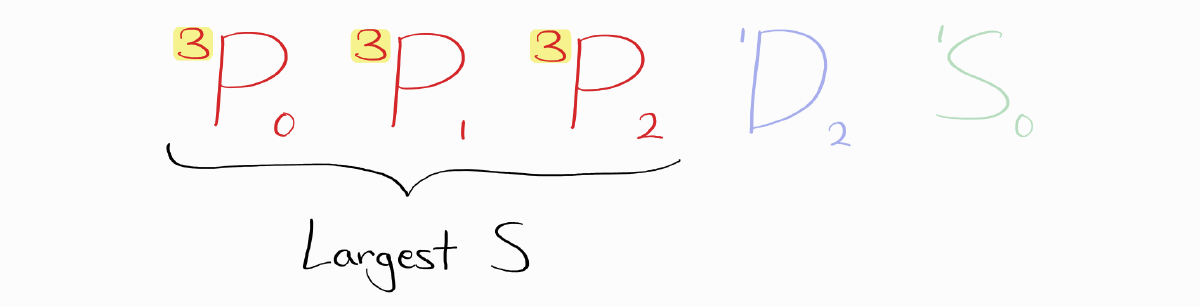 ³P₀ ³P₁ ³P₂ ¹D₂ ¹S₀
Largest S